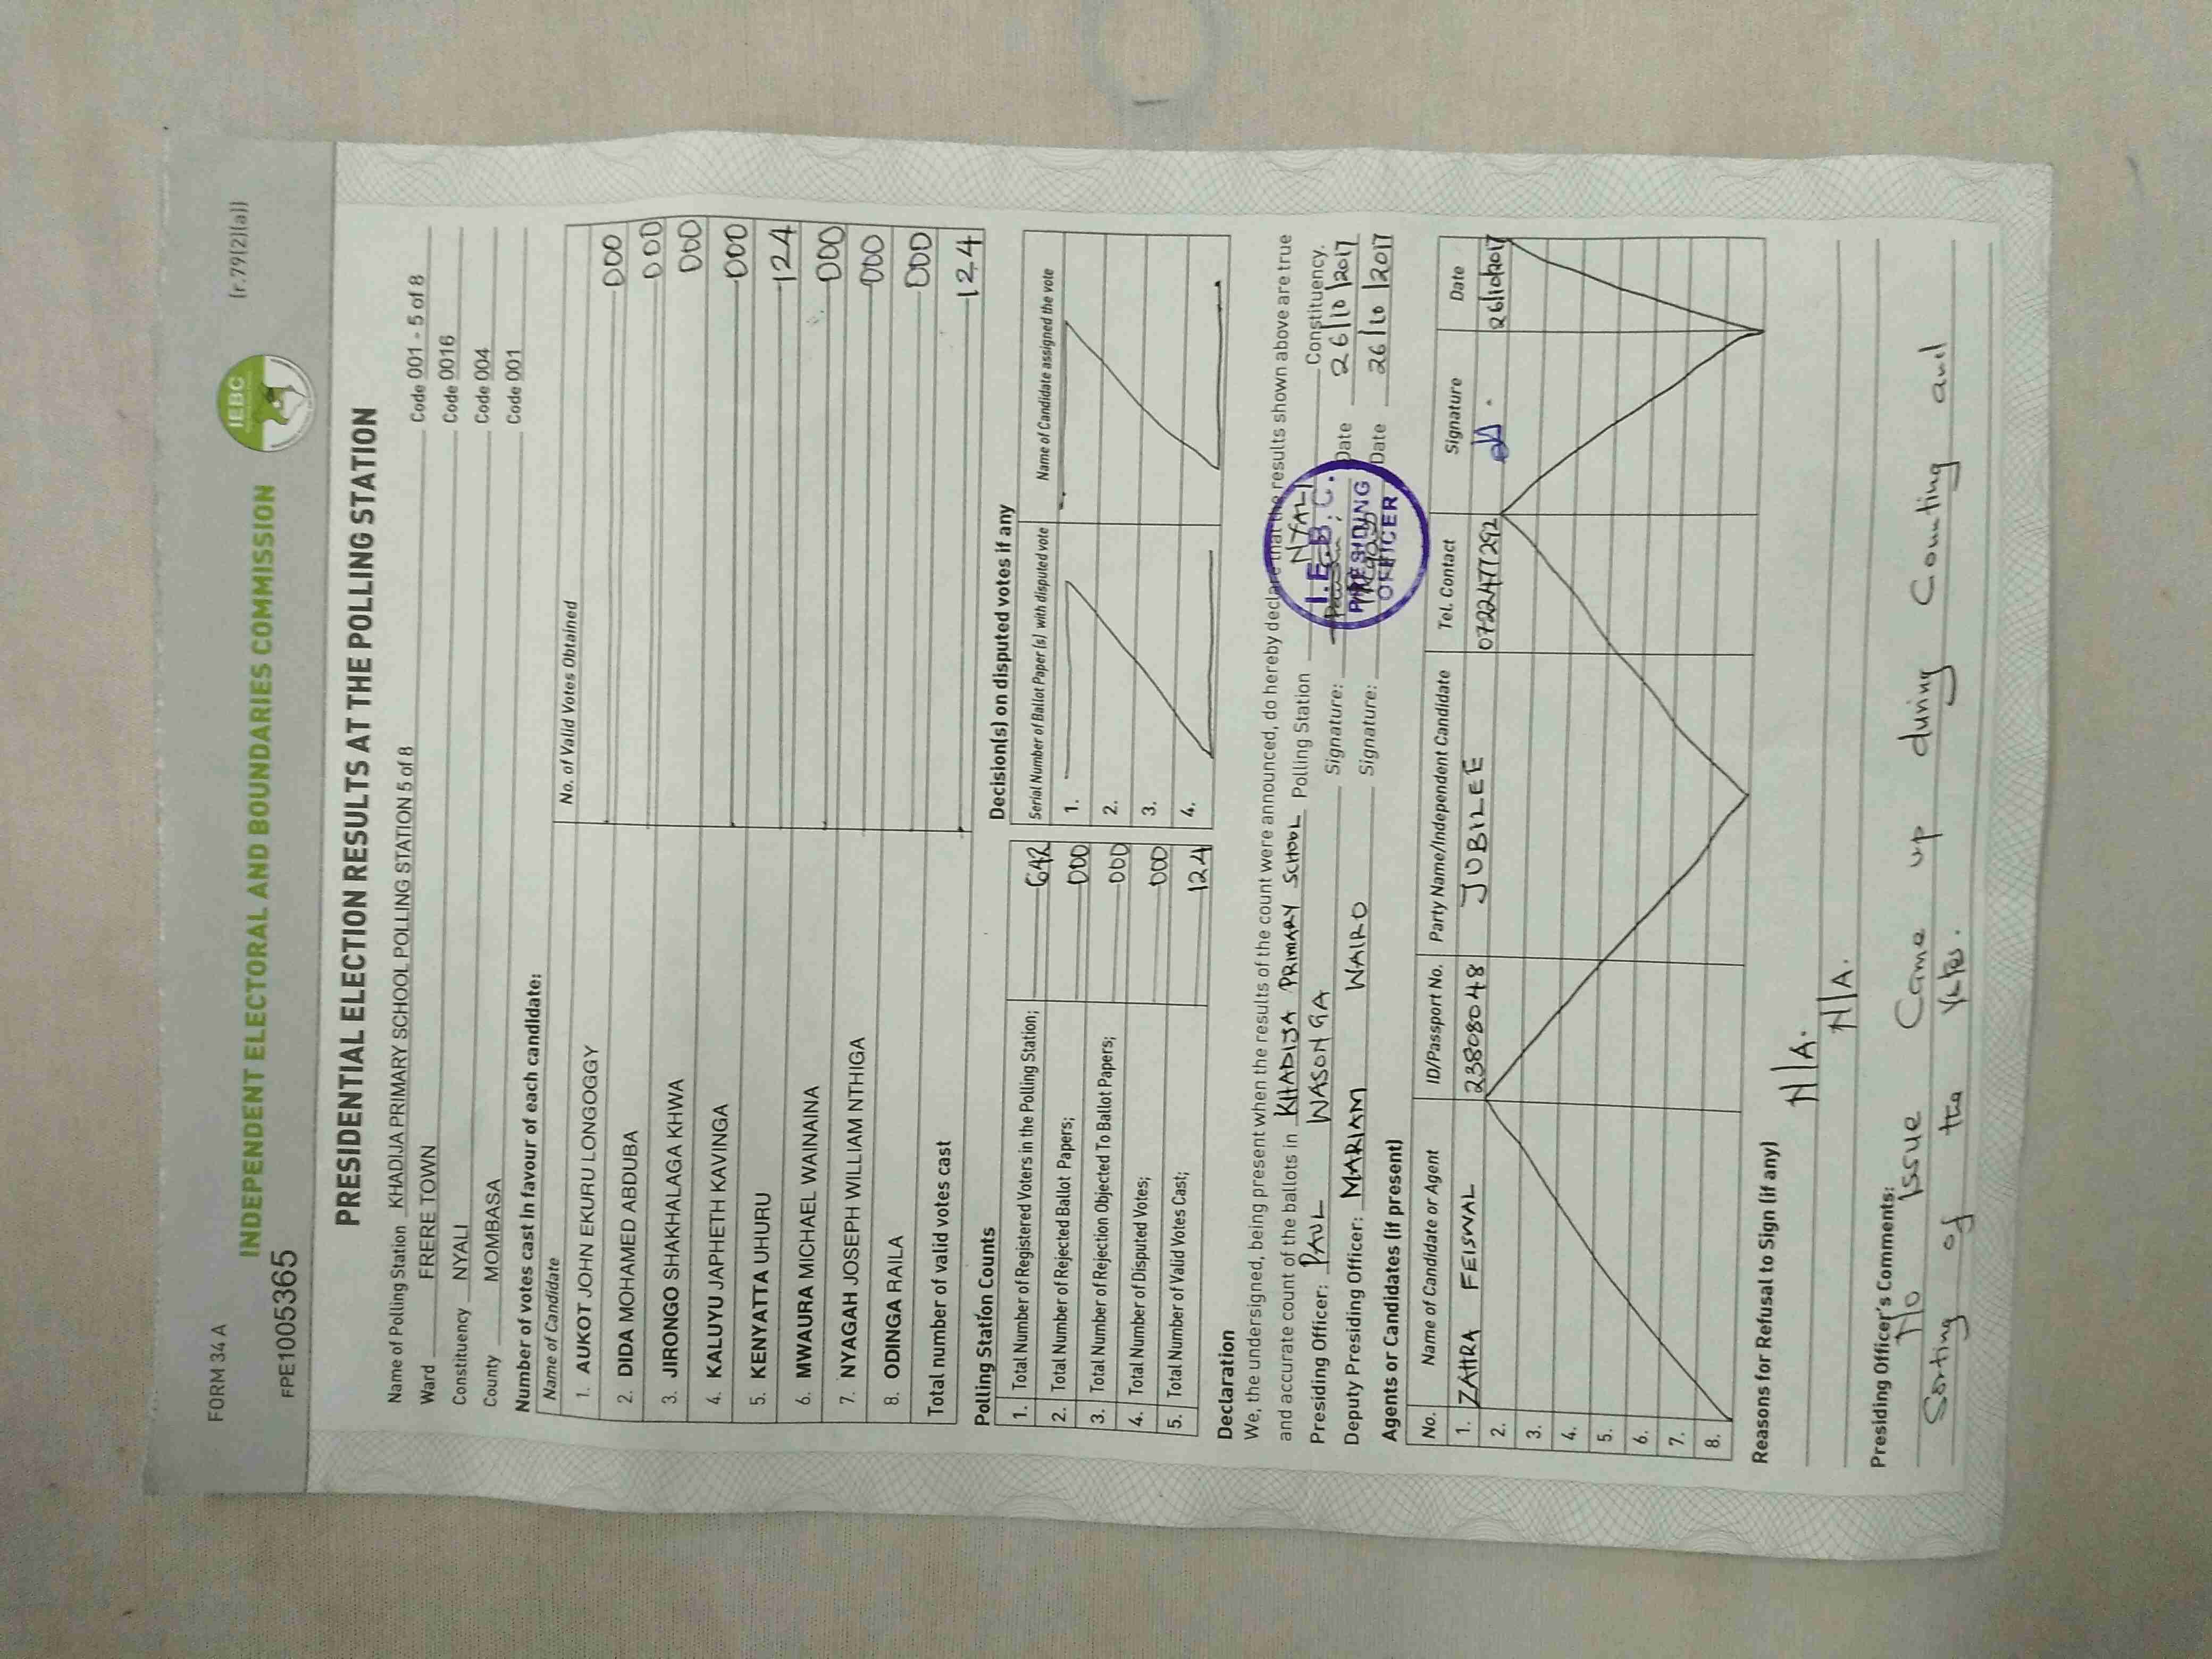 FORM 34 A
(r.79(2)(a))
IEBC
INDEPENDENT ELECTORAL AND BOUNDARIES COMMISSION
FPE1005365
PRESIDENTIAL ELECTION RESULTS AT THE POLLING STATION
Name of Polling Station KHADIJA PRIMARY SCHOOL POLLING STATION 5 of 8 Code 001 - 5 of 8
Ward FRERE TOWN Code 0016
Constituency NYALI Code 004
County MOMBASA Code 001
Number of votes cast in favour of each candidate:
Name of Candidate No. of Valid Votes Obtained
1. AUKOT JOHN EKURU LONGOGGY 000
2. DIDA MOHAMED ABDUBA 000
3. JIRONGO SHAKHALAGA KHWA 000
4. KALUYU JAPHETH KAVINGA 000
5. KENYATTA UHURU 124
6. MWAURA MICHAEL WAINAINA 000
7. NYAGAH JOSEPH WILLIAM NTHIGA 000
8. ODINGA RAILA 000
Total number of valid votes cast 124
Polling Station Counts
1. Total Number of Registered Voters in the Polling Station; 642
2. Total Number of Rejected Ballot Papers; 000
3. Total Number of Rejection Objected To Ballot Papers; 000
4. Total Number of Disputed Votes; 000
5. Total Number of Valid Votes Cast; 124
Decision(s) on disputed votes if any
Serial Number of Ballot Paper (s) with disputed vote Name of Candidate assigned the vote
1.
2.
3.
4.
Declaration
We, the undersigned, being present when the results of the count were announced, do hereby declare that the results shown above are true
and accurate count of the ballots in KHADIJA PRIMARY SCHOOL Polling Station NYALI Constituency.
Presiding Officer: PAUL WASONGA Signature: Date 26/10/2017
Deputy Presiding Officer: MARIAM WAIRO Signature: Date 26/10/2017
I.E.B.C.
PRESIDING
OFFICER
Agents or Candidates (if present)
No. Name of Candidate or Agent ID/Passport No. Party Name/Independent Candidate Tel. Contact Signature Date
1. ZAHRA FEISWAL 23808048 JUBILEE 0722477292 26/10/2017
2.
3.
4.
5.
6.
7.
8.
Reasons for Refusal to Sign (if any)
N/A.
N/A.
Presiding Officer's Comments:
No issue came up during counting and
Sorting of the votes.